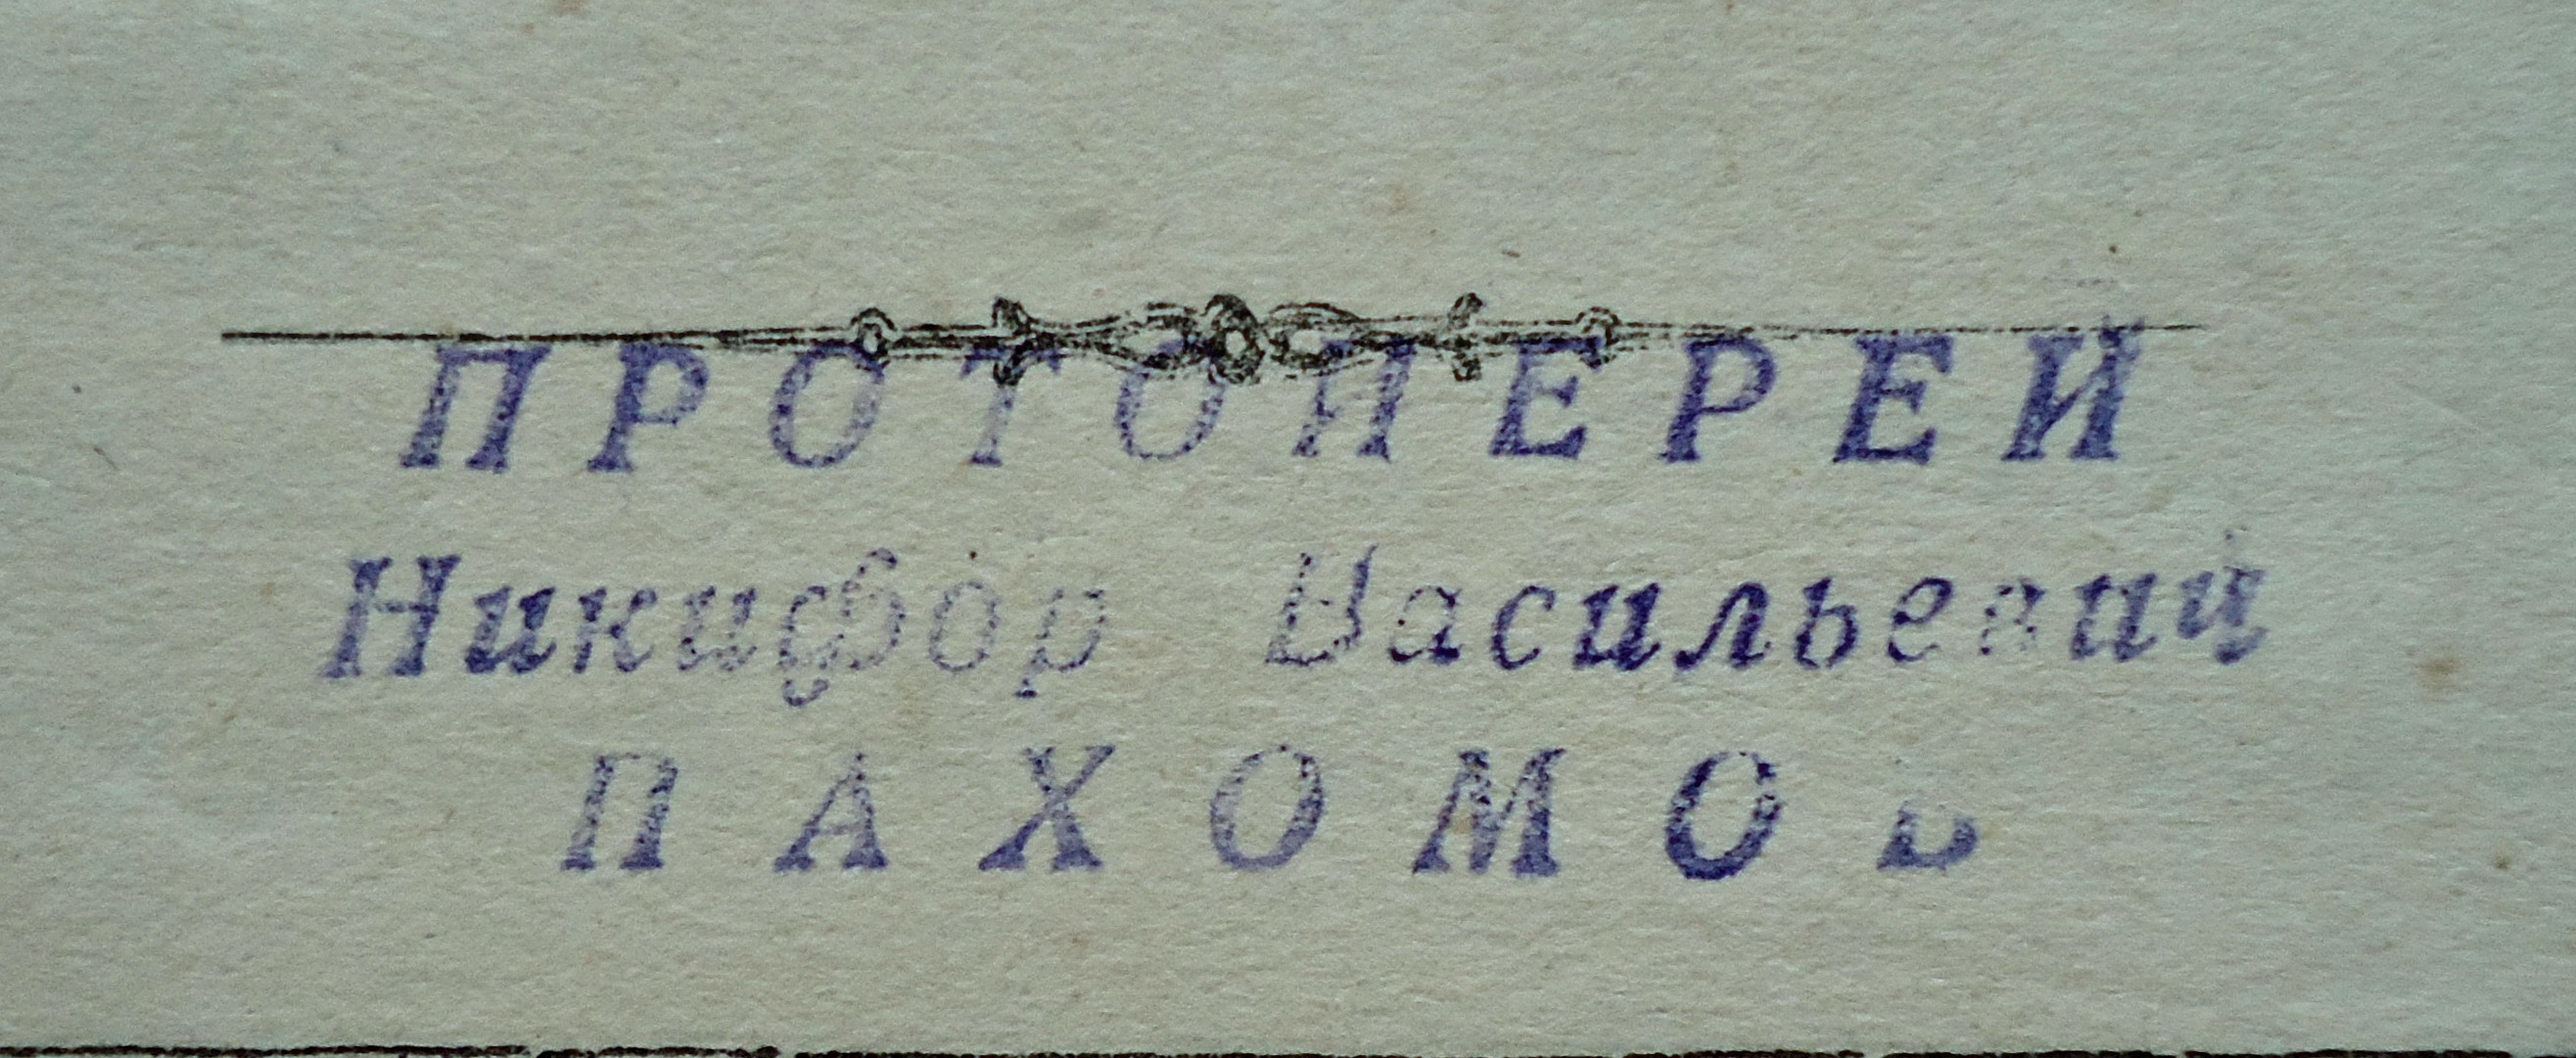 ПРОТОИЕРЕЙ
Никифор Васильевич
ПАХОМОВ